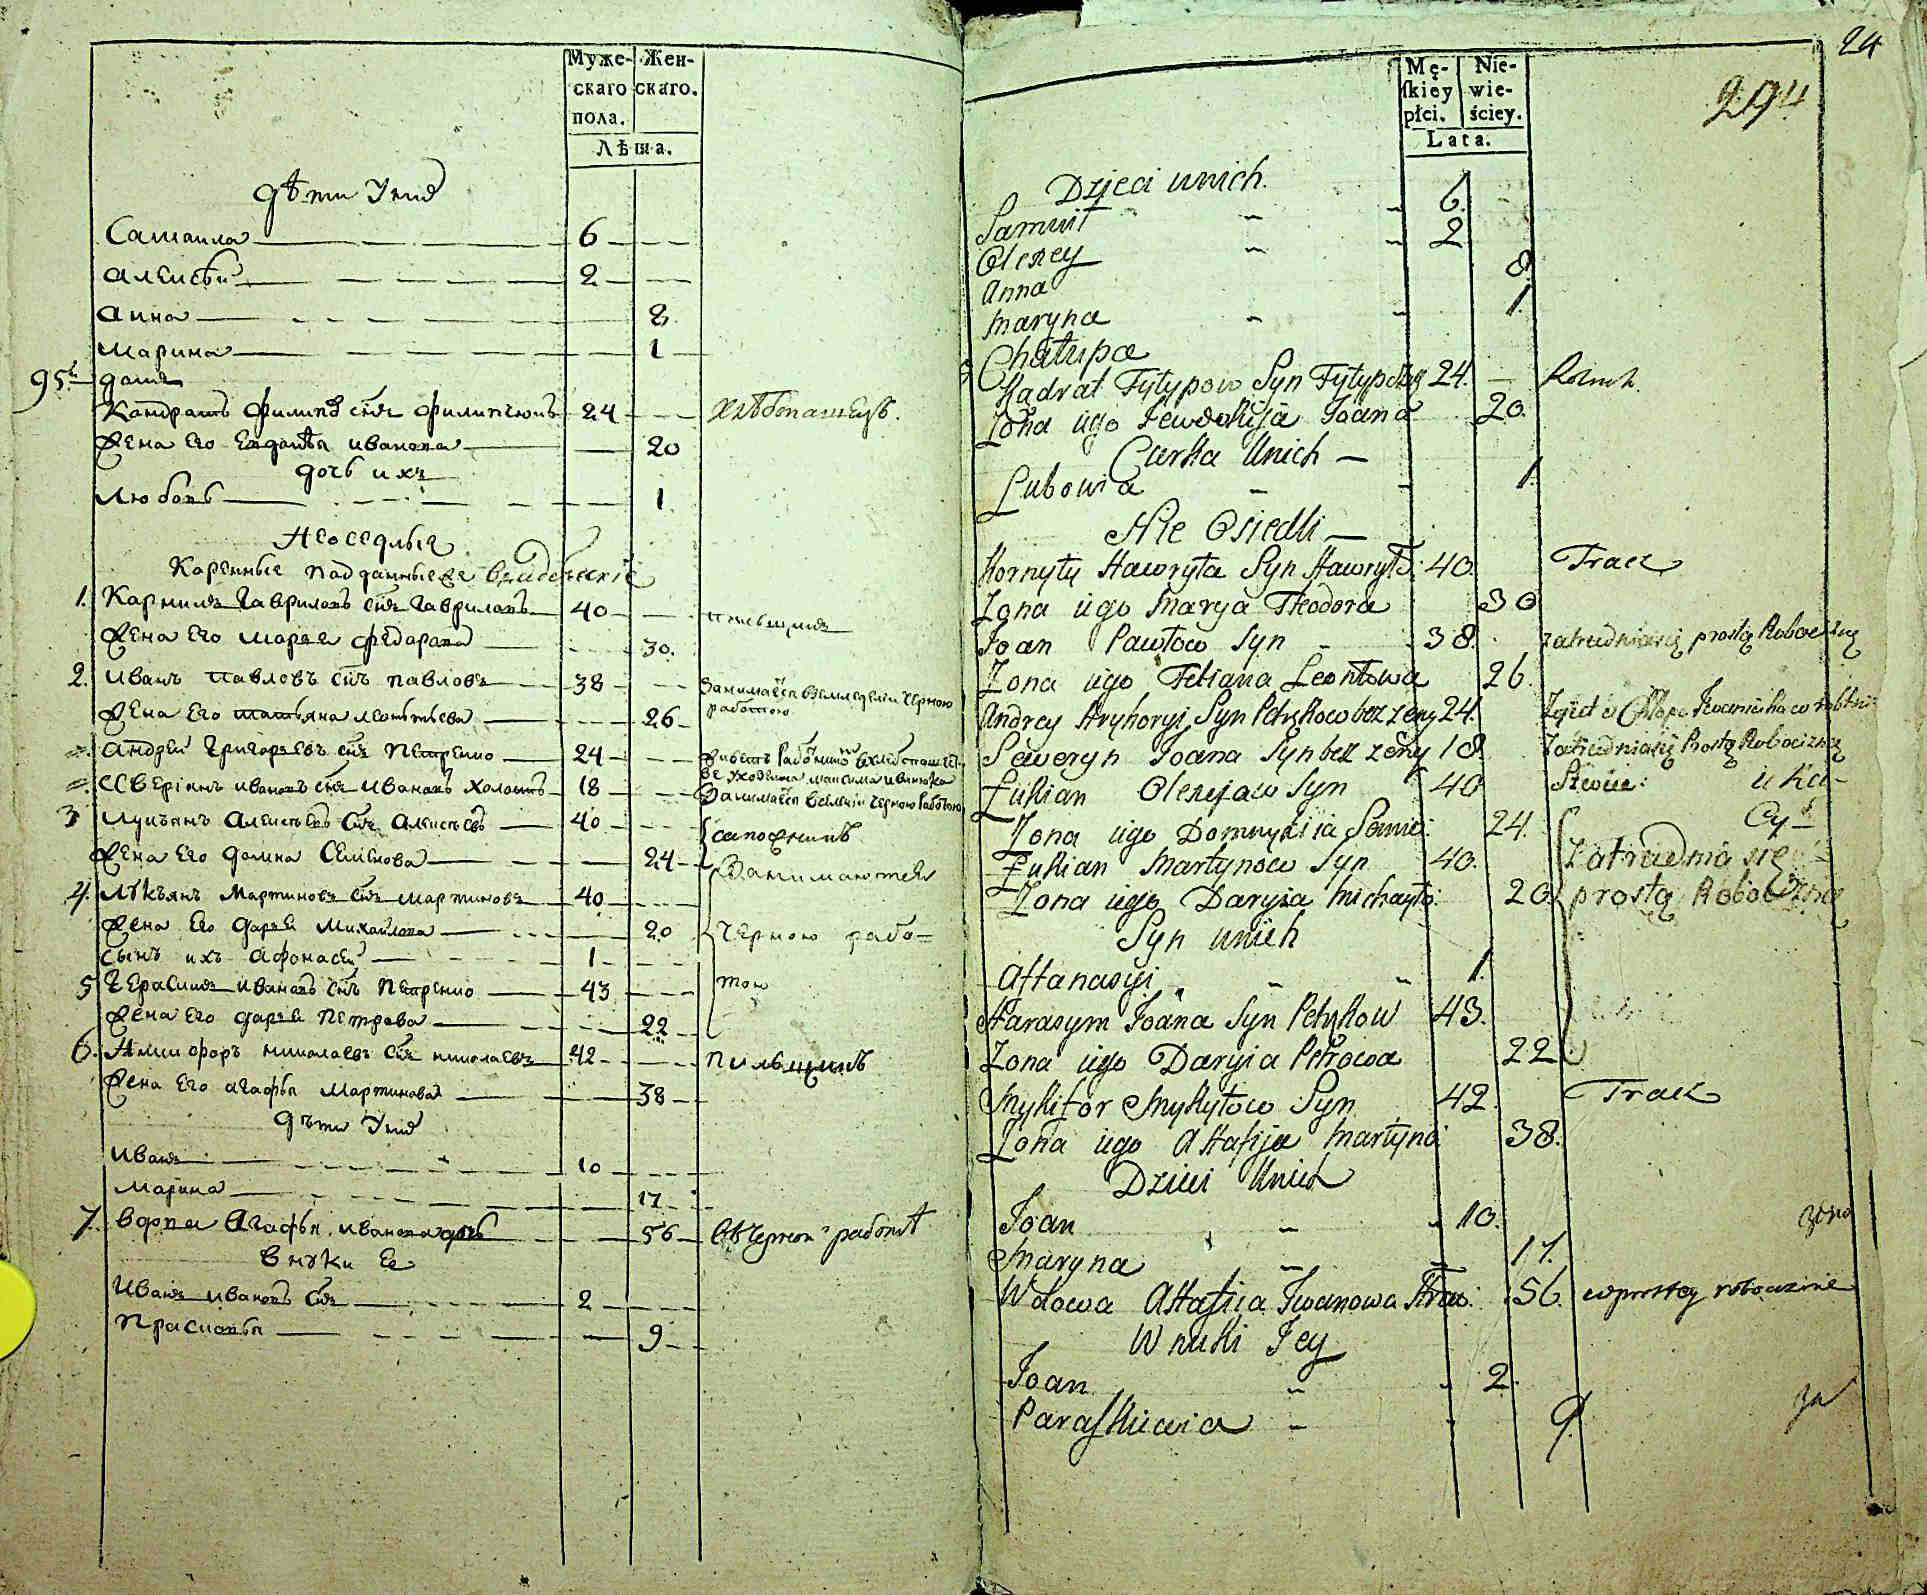 Муже-
скаго
пола.
Жен-
скаго.
Лѣта.
дѣти У нихъ
Самоила 6
Алексѣй 2
Анна 8
Марина 1
95. домъ
Кондратъ Филиповъ сынъ Филиповъ 24 хлѣбопашецъ.
Жена Его Евдокѣя Иванова 20
дочь ихъ
Любовь 1
Неоседлые
Коренные подданные
1. Корнила Гавриловъ сынъ Гавриловъ 40 пильщикъ
Жена Его Марья Федорова 30.
2. Иванъ Павловъ сынъ Павловъ 38 Занимаетса черною работою
Жена Его Татьяна Леонтьева 26
Андрей Григорьевъ сынъ Петренко 24
Северіянъ Ивановъ сынъ Ивановъ Холостъ 18 Занимаетса черною работою
3 Лукъянъ Алексѣевъ сынъ Алексѣевъ 40 сапожникъ
Жена Его Домна Семенова 24 Занимаются
4. Лукъянъ Мартиновъ сынъ Мартиновъ 40
Жена Его Дарья Михайлова 20 черною рабо=
сынъ ихъ Афонасей 1
5 Герасимъ Ивановъ сынъ Петренко 43 тою
Жена Его Дарья Петрова 22
6. Никифоръ Николаевъ сынъ Николаевъ 42 пильщикъ
Жена Его Агафья Мартинова 38
Дѣти У нихъ
Иванъ 10
Марина 17
7. вдова Агафья Иванова дочь 56 въ черной работѣ
внуки Ее
Иванъ Ивановъ сынъ 2
Прасковья 9
24
294
Mę-
skiey
płci.
Nie-
wie-
ściey.
Lata.
Dzieci unich.
Samuił 6.
Olexey 2
Anna 8.
Maryna 1.
Chałupa
Kadrat Fyłypow Syn 24. Rolnik.
Żona iego Jewdokija Joana 20.
Curka Unich
Lubowia 1.
Nie Osiedli
Kornyły Hawryła Syn Hawryło: 40. Tracz
Zona iego Marya Theodora 30
Joan Pawłow Syn 38. zatrudniasię prostą Roboczną
Zona iego Tetiana Leontowa 26.
Andrey Hryhoryi Syn Petrykow bez żeny 24.
Seweryn Joana Syn bez żeny 18. Zatrudniasię Prostą Robocizną
Łukian Olexejow Syn 40
Zona iego Domnykiia Semio: 24.
Łukian Martynow Syn 40. Zatrudnia się
Zona iego Daryia Michayło: 20. prostą Roboczną
Syn unich
Attanasyi 1.
Harasym Joana Syn Petrykow 43.
Zona iego Daryia Petrowa 22
Mykifor Mykytow Syn 42 Tracz
Zona iego Ahafija Martyno: 38.
Dzieci Unich
Joan 10.
Maryna 17.
Wdowa Ahafiia Iwanowa 56. w prostey roboczznie
Wnuki Jey
Joan 2.
Paraskiewia 9.